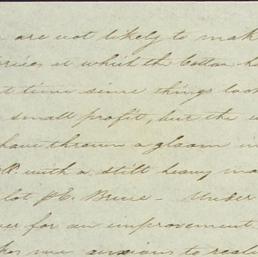 are not likely to mak
at which the cotton
t time since things look
small profit, but the
have thrown a gloom
with a still heavy ma
lot Bruce - Under
er for an improvement
me anxious to reali